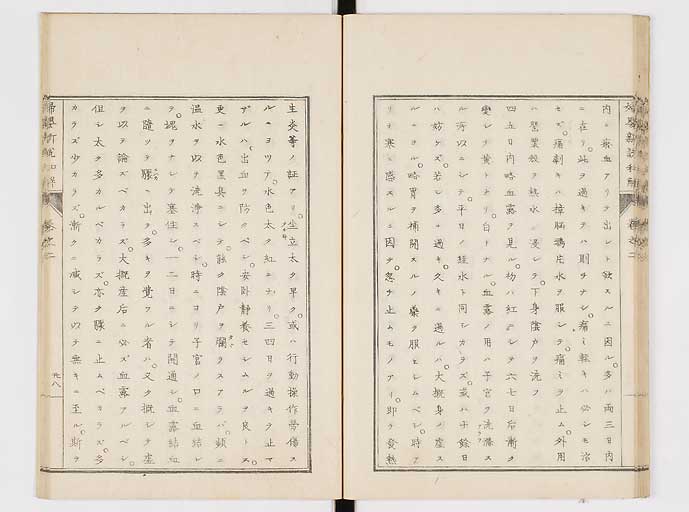 内ニ瘀血アリテ出ント欲スルニ因ル多ハ両三日内
ニ在リ此ヲ過キテハ則ヲナシ痛ミ軽キハ必シモ治
セズ痛劇キハ樟脳鴉片水ヲ服シテ痛ミヲ止ム外用
ハ罌粟殻ヲ熱水ニ浸シテ下身陰カヲ洗フ
四五日内略血露ヲ見ル初ハ紅ニシテ六七日后漸ク
変シテ黄トナリ白トナル血露ノ用ハ子宮ヲ洗滌ス
ル所以ニシテ平日ノ経水ト同シカラズ或ハ十餘日
ハ妨ケズ若シ多ニ過キ久キニ過ルハ大概身ノ虚ス
ルノミ略胃ヲ補開スルノ薬ヲ服セシムベシ時ヲ
リテ寒ニ感スルニ因テ忽チ止ムモノアリ即チ発熱
生炎等ノ証アリ坐立太タ早ク或ハ行動操作労傷ス
ルニヨツテ水色太タ紅ニナリ三四日ヲ過キテ止マ
ザルハ出血ヲ防クベシ安臥静養セシムルヲ良トス
更ニ水色黒臭ニシテ能ク陰戸ヲ爛ラスアラバ頻ニ
温水ヲ以テ洗浄スベシ時ニヨリ子宮ノ口ニ血結シ
テ塊ヲナシテ塞住シ一二日ニシテ開通シ血露結血
ニ随ツテ驟カニ出ヲ多キヲ覚フル者ハ又タ概シテ虚
ヲ以テ論ズベカラズ大概産后ニ必ズ血露アルベシ
但シ太タ多カルベカラズ亦タ驟ニ止ムベカラズ多
カラズ少カラズ漸クニ減シテ以テ無キニ至ル斯ヲ
婦嬰新説和解
巻之二
廿八